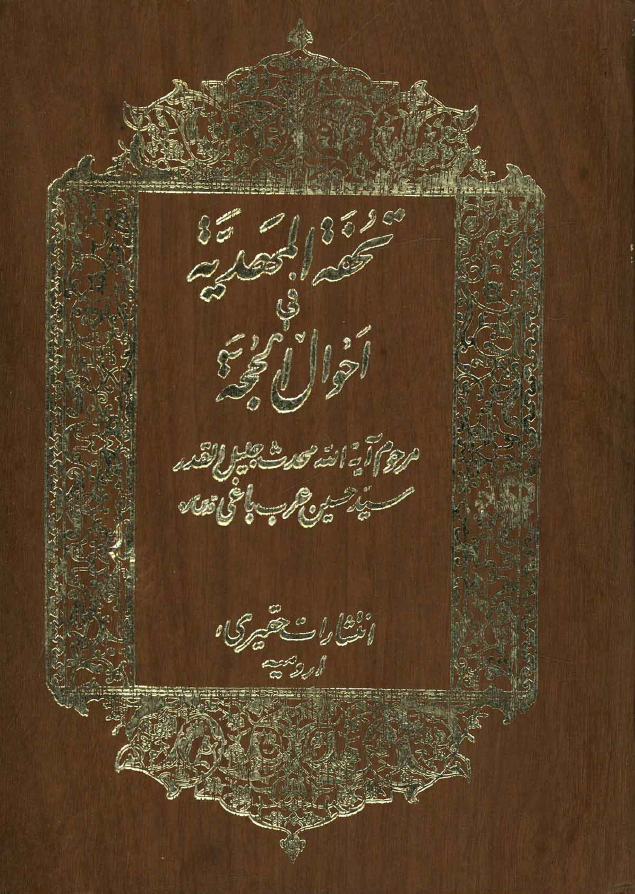 تُحْفَة المَهدِيَّة
فی
اَحْوالِ الحُجَّة
مرحوم آیة الله محدث جلیل القدر
سید حسین عرب باغی
انتشارات حقیری،
ارومیه